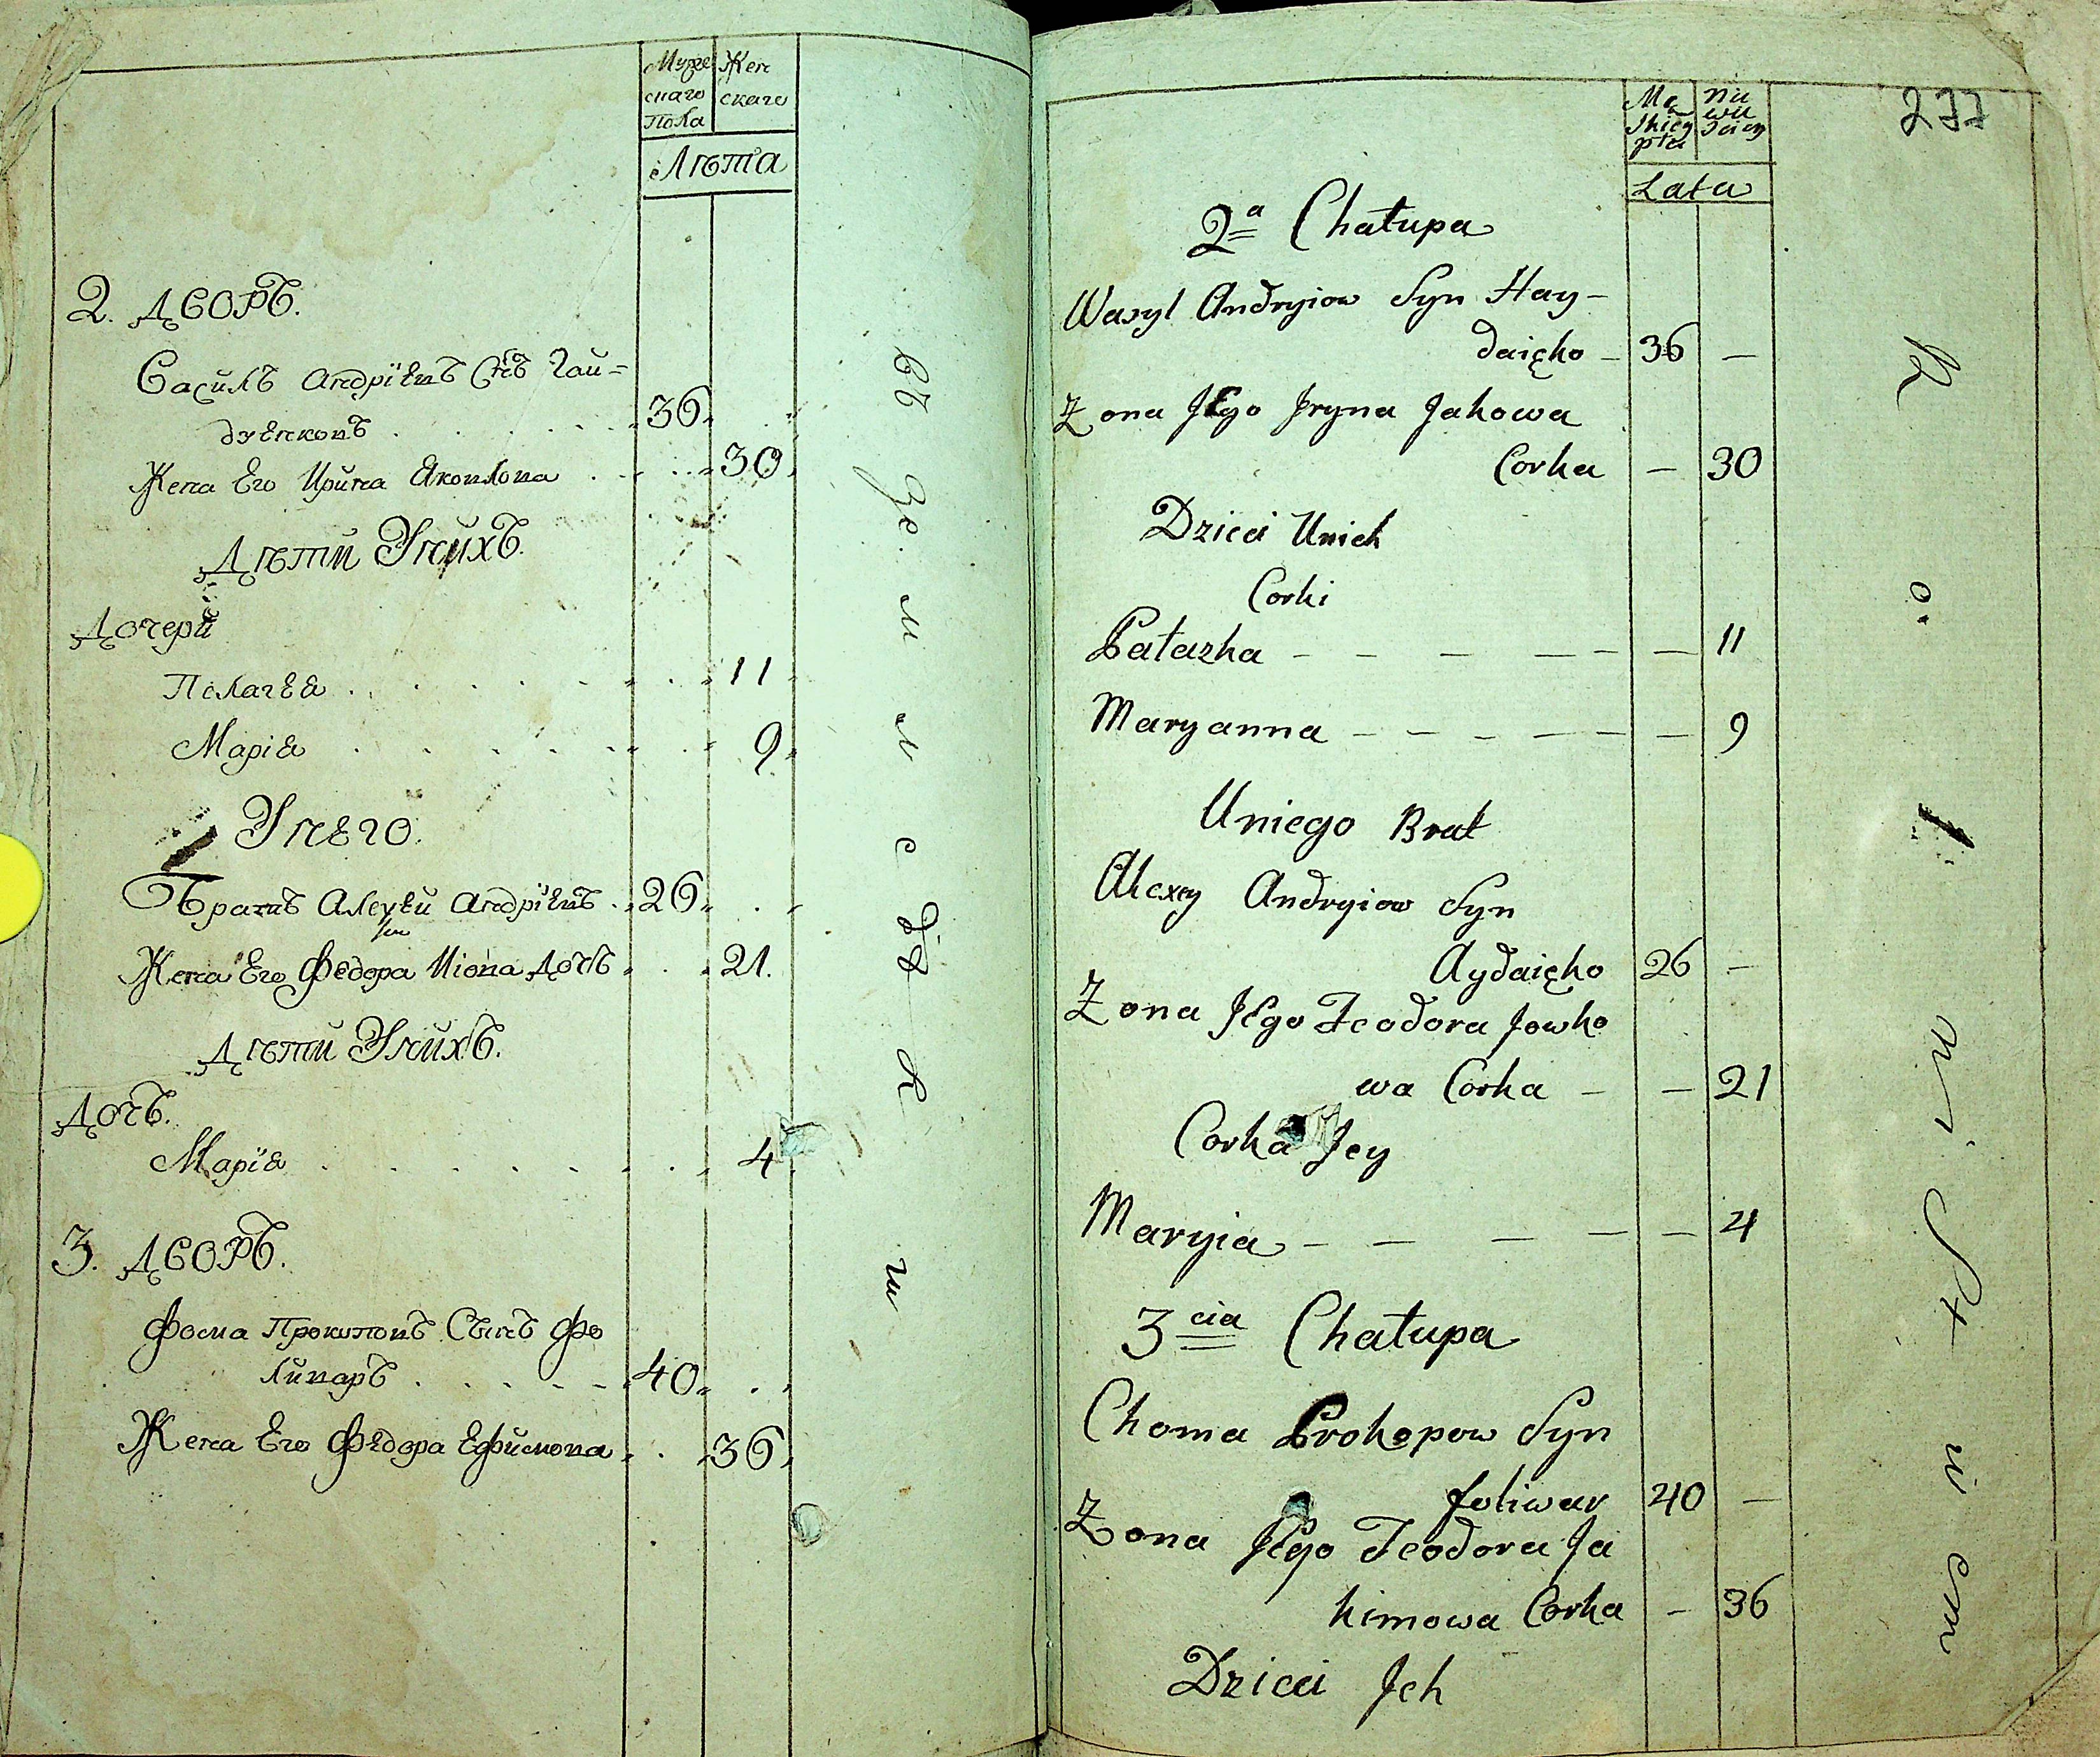 Мужескаго Пола
Женскаго
Лѣта
2. Дворъ.
Василъ Андрїевъ Снъ Гай=
дуенковъ 36
Жена Его Ирина Яковлова 30
Дѣти Унихъ.
Дочери
Пелагея 11
Марія 9
Унего.
Братъ Алеѯѣй Андрїевъ 26
Жена Его Федора Иiова Дочь 21.
Дѣти Унихъ.
Дочъ.
Марїя 4
3. Дворъ.
Фома Прокоповъ Сынъ Фо
ливаръ 40
Жена Его Федора Ефимова 36
277
Mę
skiey
płci
Nie
wie
sciey
Lata
2a Chałupa
Wasyl Andryiow Syn Hay-
daięko - 36 -
Zona Jego Jryna Jakowa
Corka - 30
Dzieci Unich
Corki
Pałazka - 11
Maryanna - 9
Uniego Brat
Alexey Andryiow Syn
Aydaięko 26 -
Zona Jego Teodora Jowko
wa Corka - - 21
Corka Jey
Maryia - 4
3cia Chałupa
Choma Prokopow Syn
foliwar 40 -
Zona Jego Teodora Ja
kimowa Corka - 36
Dzieci Jch